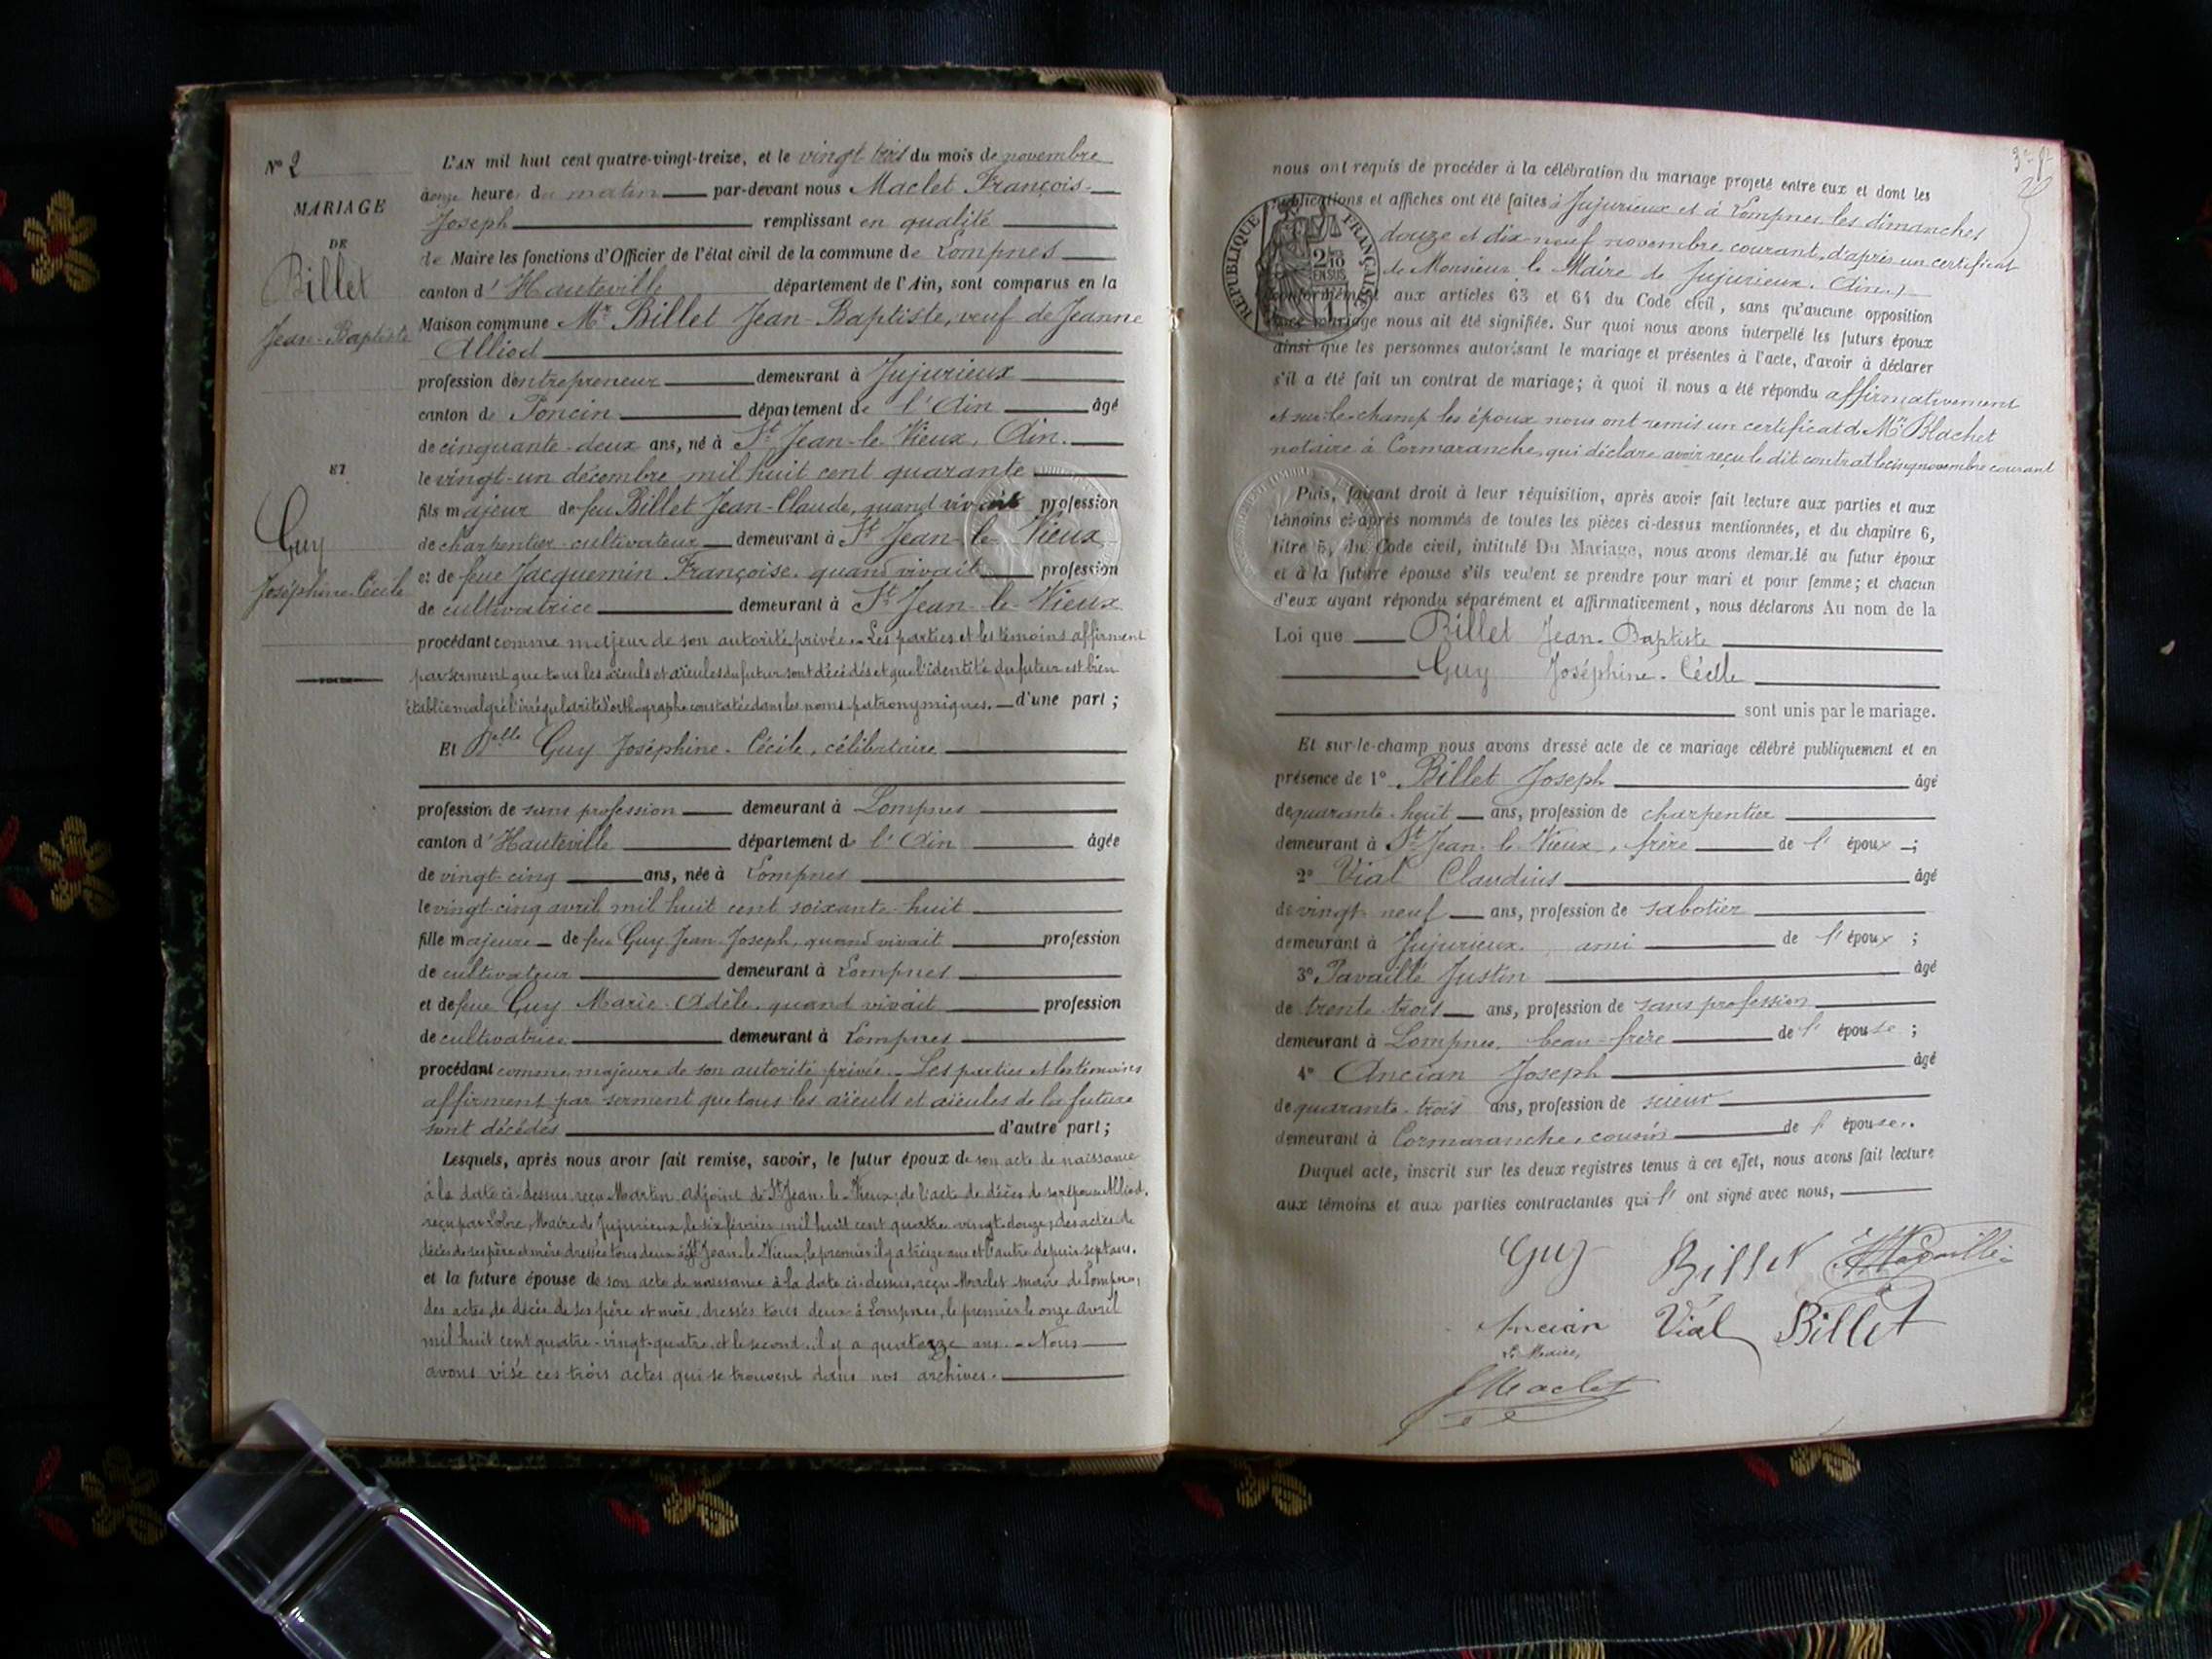 N° 2
MARIAGE
DE
Billet
Jean-Baptiste
ET
Guy
Joséphine-Cécile
L'AN mil huit cent quatre-vingt-treize, et le vingt-trois du mois de novembre
à onze heures du matin par-devant nous Maclet François-
Joseph remplissant en qualité
de Maire les fonctions d'Officier de l'état civil de la commune de Lompnes
canton d'Hauteville département de l'Ain, sont comparus en la
Maison commune Mr Billet Jean-Baptiste, veuf de Jeanne
Alliod
profession d'entrepreneur demeurant à Jujurieux
canton de Poncin département de l'Ain âgé
de cinquante-deux ans, né à St Jean-le-Vieux, Ain.
le vingt-un décembre mil huit cent quarante
fils majeur de feu Billet Jean-Claude, quand vivait profession
de charpentier-cultivateur demeurant à St Jean-le-Vieux
et de feue Jacquemin Françoise, quand vivait profession
de cultivatrice demeurant à St Jean-le-Vieux
procédant comme majeur de son autorité privée. - Les parties et les témoins affirment
par serment que tous les aïeuls et aïeules du futur sont décédés et que l'identité du futur est bien
établie malgré l'irrégularité d'orthographe constatée dans les noms patronymiques. d'une part ;
Et Delle Guy Joséphine-Cécile, célibataire
profession de sans profession demeurant à Lompnes
canton d'Hauteville département de l'Ain âgée
de vingt-cinq ans, née à Lompnes
le vingt-cinq avril mil huit cent soixante-huit
fille majeure de feu Guy Jean-Joseph, quand vivait profession
de cultivateur demeurant à Lompnes
et de feue Guy Marie-Adèle, quand vivait profession
de cultivatrice demeurant à Lompnes
procédant comme majeure de son autorité privée. - Les parties et les témoins
affirment par serment que tous les aïeuls et aïeules de la future
sont décédés d'autre part ;
Lesquels, après nous avoir fait remise, savoir, le futur époux de son acte de naissance
à la date ci-dessus, reçu Martin adjoint de St Jean-le-Vieux ; de l'acte de décès de son épouse Alliod,
reçu par Lobre, Maire de Jujurieux, le six février mil huit cent quatre-vingt-douze ; des actes de
décès de ses père et mère dressés tous deux à St Jean-le-Vieux, le premier il y a treize ans et l'autre depuis sept ans.
et la future épouse de son acte de naissance à la date ci-dessus, reçu Maclet maire de Lompnes,
des actes de décès de ses père et mère, dressés tous deux à Lompnes, le premier le onze avril
mil huit cent quatre-vingt-quatre, et le second, il y a quatorze ans. - Nous
avons visé ces trois actes qui se trouvent dans nos archives.
nous ont requis de procéder à la célébration du mariage projeté entre eux et dont les
publications et affiches ont été faites à Jujurieux et à Lompnes les dimanches
douze et dix-neuf novembre courant, d'après un certificat
de Monsieur le Maire de Jujurieux. (Ain.)
RÉPUBLIQUE FRANÇAISE
2/10 EN SUS
1 F
conformément aux articles 63 et 64 du Code civil, sans qu'aucune opposition
audit mariage nous ait été signifiée. Sur quoi nous avons interpellé les futurs époux
ainsi que les personnes autorisant le mariage et présentes à l'acte, d'avoir à déclarer
s'il a été fait un contrat de mariage ; à quoi il nous a été répondu affirmativement
et sur-le-champ les époux nous ont remis un certificat de Me Blachet
notaire à Cormaranche, qui déclare avoir reçu le dit contrat le cinq novembre courant
Puis, faisant droit à leur réquisition, après avoir fait lecture aux parties et aux
témoins ci-après nommés de toutes les pièces ci-dessus mentionnées, et du chapitre 6,
titre 5, du Code civil, intitulé Du Mariage, nous avons demandé au futur époux
et à la future épouse s'ils veulent se prendre pour mari et pour femme ; et chacun
d'eux ayant répondu séparément et affirmativement, nous déclarons Au nom de la
Loi que Billet Jean-Baptiste
Guy Joséphine-Cécile
sont unis par le mariage.
Et sur-le-champ nous avons dressé acte de ce mariage célébré publiquement et en
présence de 1° Billet Joseph âgé
de quarante-huit ans, profession de charpentier
demeurant à St Jean-le-Vieux, frère de l'époux ;
2° Vial Claudius âgé
de vingt-neuf ans, profession de sabotier
demeurant à Jujurieux, ami de l'époux ;
3° Pavaillé Justin âgé
de trente-trois ans, profession de sans profession
demeurant à Lompnes, beau-frère de l'épouse ;
4° Ancian Joseph âgé
de quarante-trois ans, profession de scieur
demeurant à Cormaranche, cousin de l'épouse.
Duquel acte, inscrit sur les deux registres tenus à cet effet, nous avons fait lecture
aux témoins et aux parties contractantes qui l'ont signé avec nous,
Guy Billet
Ancian Vial Billet
Le Maire,
Maclet